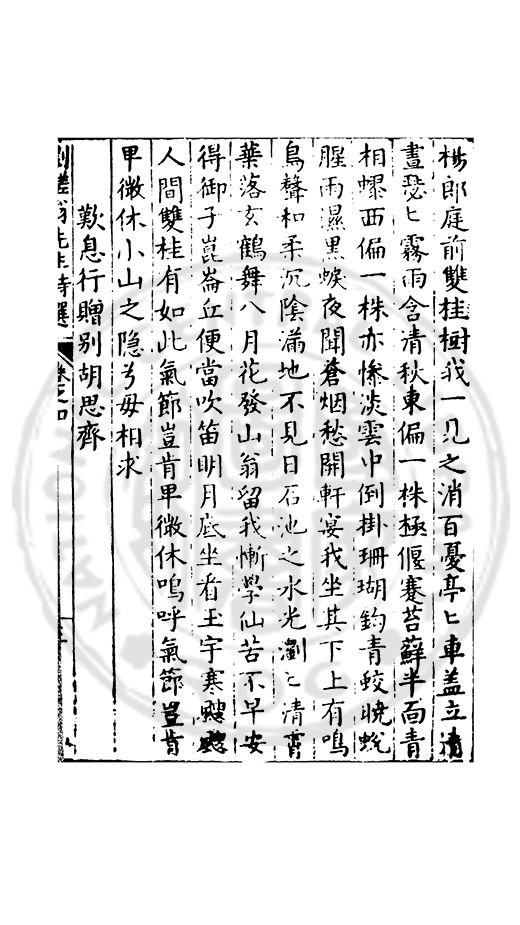 楊郎庭前雙桂樹我一見之消百憂亭亠車盖立清
晝瑟亠霧雨含清秋東偏一株極偃蹇苔蘚半面青
相蟉西偏一株亦慘淡雲中倒掛珊瑚鈎青蛟晓蛻
腥雨濕黒蜧夜聞蒼烟愁開軒宴我坐其下上有鳴
鳥聲和柔沉陰滿地不見日石池之水光瀏亠清霄
葉落玄鶴舞八月花發山翁留我慚學仙苦不早安
得御子崑崙丘便當吹笛明月底坐看玉宇寒颼飂
人間雙桂有如此氣節豈肯甲微休嗚呼氣節豈肯
甲微休小山之隐兮毋相求
歎息行贈别胡思齊
翁先生詩選 卷之四